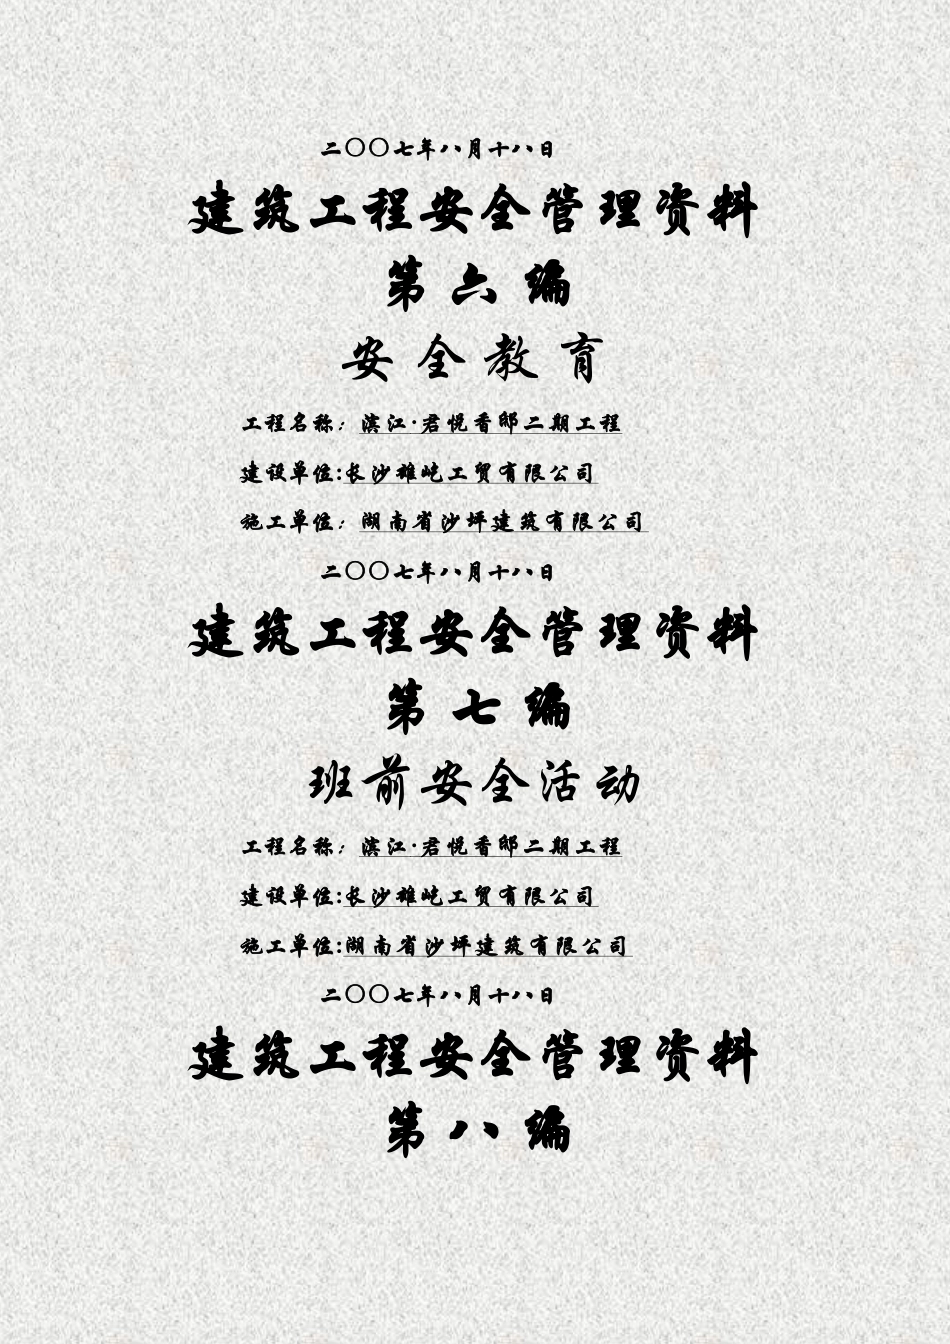 二〇〇七年八月十八日
建筑工程安全管理资料
第六编
安全教育
工程名称：滨江·君悦香邸二期工程
建设单位:长沙雄屹工贸有限公司
施工单位：湖南省沙坪建筑有限公司
二〇〇七年八月十八日
建筑工程安全管理资料
第七编
班前安全活动
工程名称：滨江·君悦香邸二期工程
建设单位:长沙雄屹工贸有限公司
施工单位:湖南省沙坪建筑有限公司
二〇〇七年八月十八日
建筑工程安全管理资料
第八编